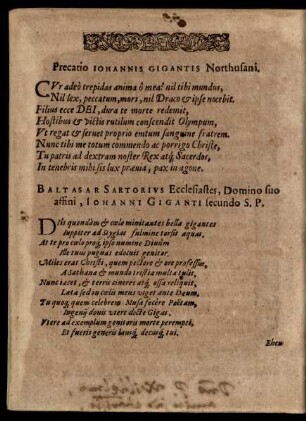 Precatio IOHANNIS GIGANTIS Northusani.
CVr adeò trepidas anima ô mea? nil tibi mundus,
Nil lex, peccatum, mors, nil Draco & ipse nocebit.
Filius ecce DEI, dura te morte redemit,
Hostibus & victis rutilum conscendit Olympum,
Vt regat & seruet proprio emtum sanguine fratrem.
Nunc tibi me totum commendo ac porrigo Christe,
Tu patris ad dextram noster Rex atq; Sacerdos,
In tenebris mihi sis lux prævia, pax in agone.
BALTASAR SARTORIVS Ecclesiastes, Domino suo
affini, IOHANNI GIGANTI secundo S. P.
DIis quondam & cœlo minitantes bella gigantes
Iuppiter ad Phlegias fulmine torsit aquas.
At te pro cœlo proq; ipso numine Diuûm
Ille tuus pugnas edocuit genitor.
Miles erat Christi, quem pectore & ore professus,
A Sathana & mundo tristia multa tulit,
Nunc iacet, & terris cineres atq; ossa reliquit,
Læta sed in cœlis mens viget ante Deum.
Tu quoq; quem celebrem Musa fecêre Poëtam,
Ingenij donis vtere docte Gigas.
Vtere ad exemplum genitoris morte perempti,
Et fueris generis lausq; decusq; tui.
Eheu